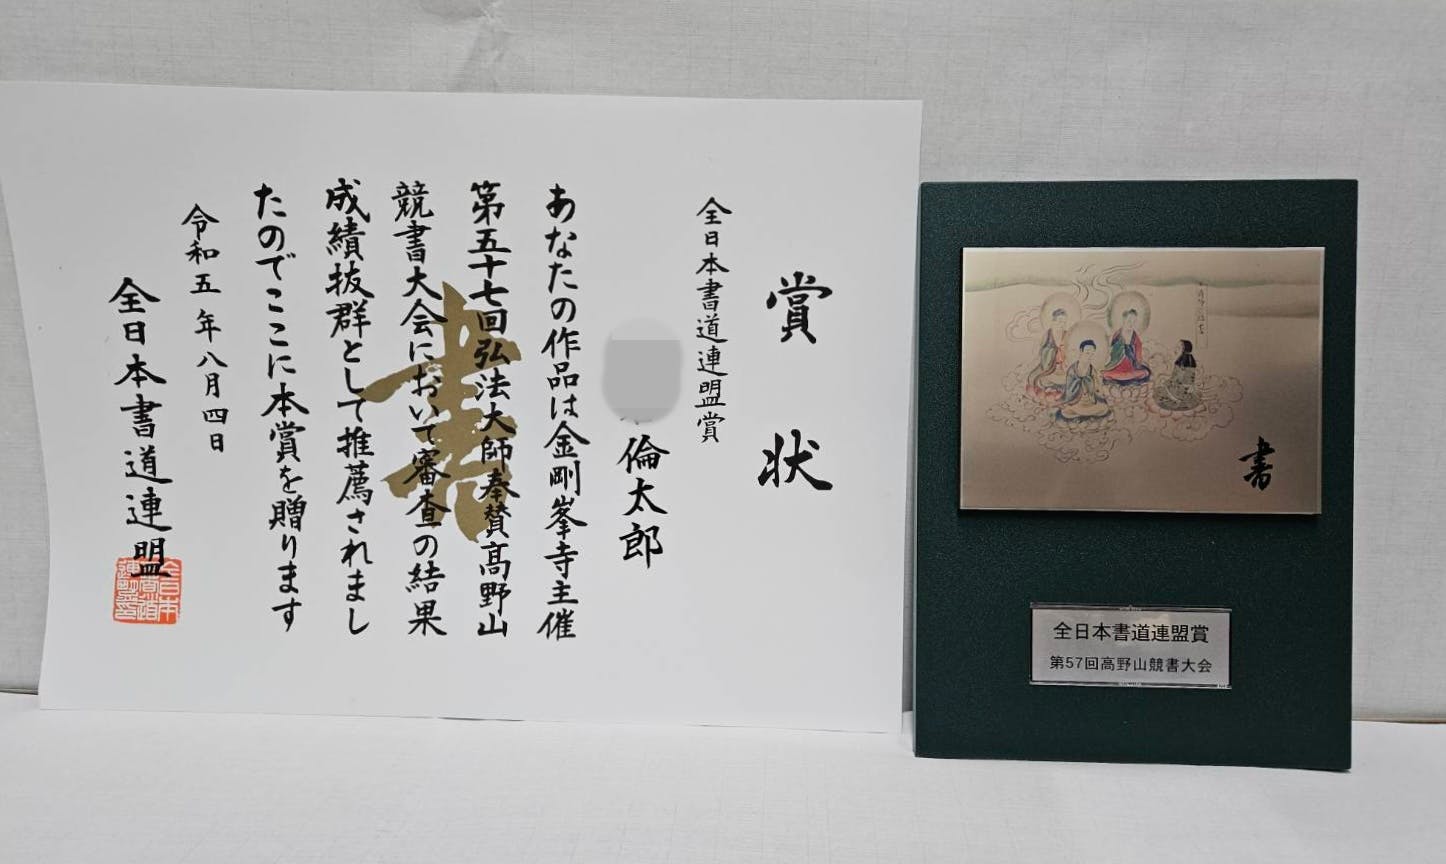 賞状
全日本書道連盟賞
倫太郎
あなたの作品は金剛峯寺主催
第五十七回弘法大師奉賛高野山
競書大会において審査の結果
成績抜群として推薦されまし
たのでここに本賞を贈ります
令和五年八月四日
全日本書道連盟
書
書
全日本書道連盟賞
第57回高野山競書大会